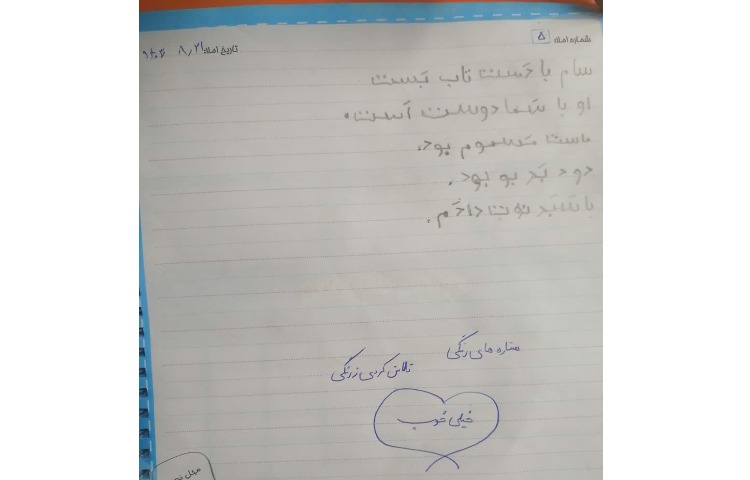 شماره املا: ۵
تاریخ املا: ۸٫۲۱
سام با دَست تاب بَست
او با شما دوست اَست.
ماست مَسموم بود.
دود بَد بو بود.
با سَبَد توت دادَم.
ستاره های رنگی
تلاش کردی زرنگی
خیلی خوب
محل